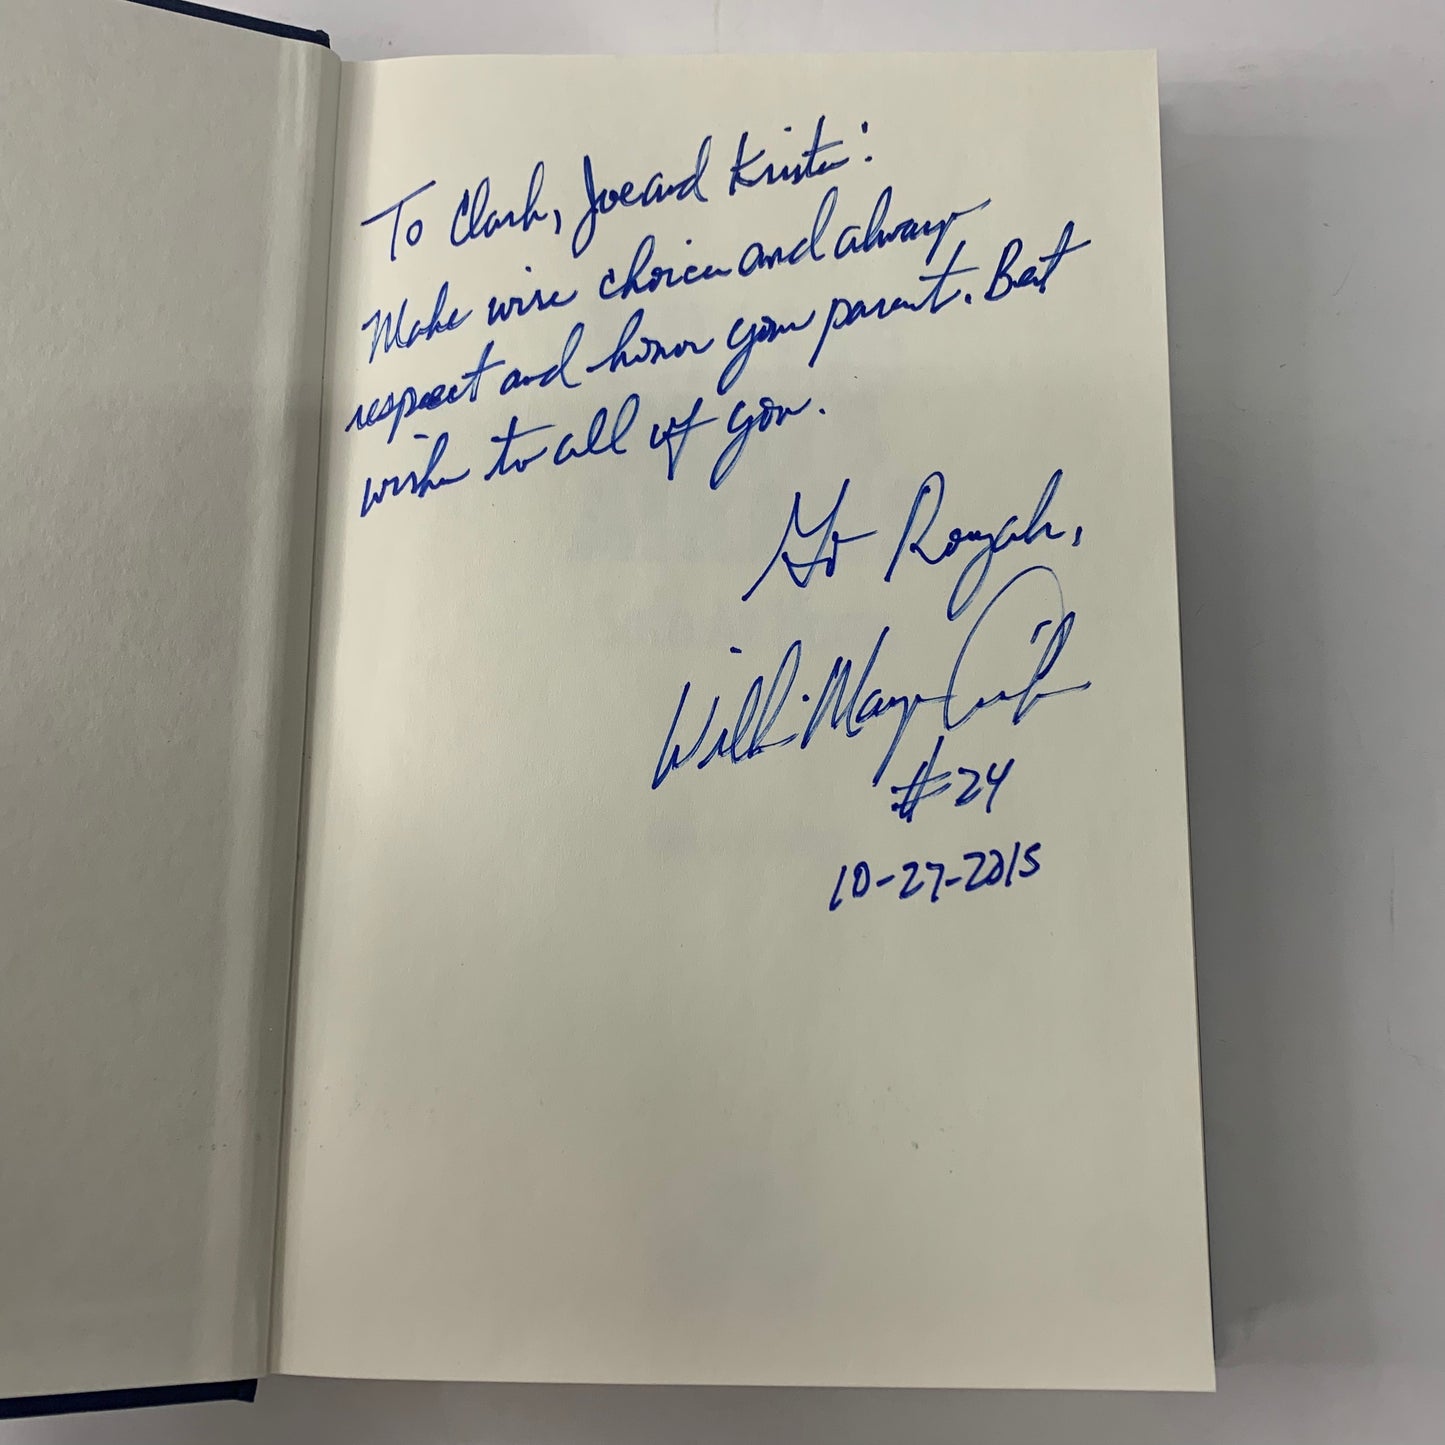 To Clark, Joe and Kristen:
Make wise choices and always
respect and honor your parents. Best
wishes to all of you.
Go Royals,
Willie Mays Aikens
#24
10-27-2015